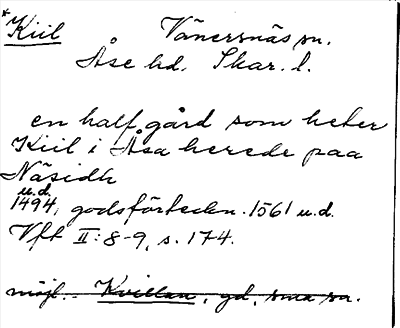 *Kiil Vänersnäs sn.
Åse hd. Skar. l.
en half gård som heter
Kiil i Åsa herede paa
Näsidh
u.d.
1494, godsförteckn. 1561 u.d.
Vft II: 8-9, s. 174.
möjl. Kvillan, gd, sma sn.